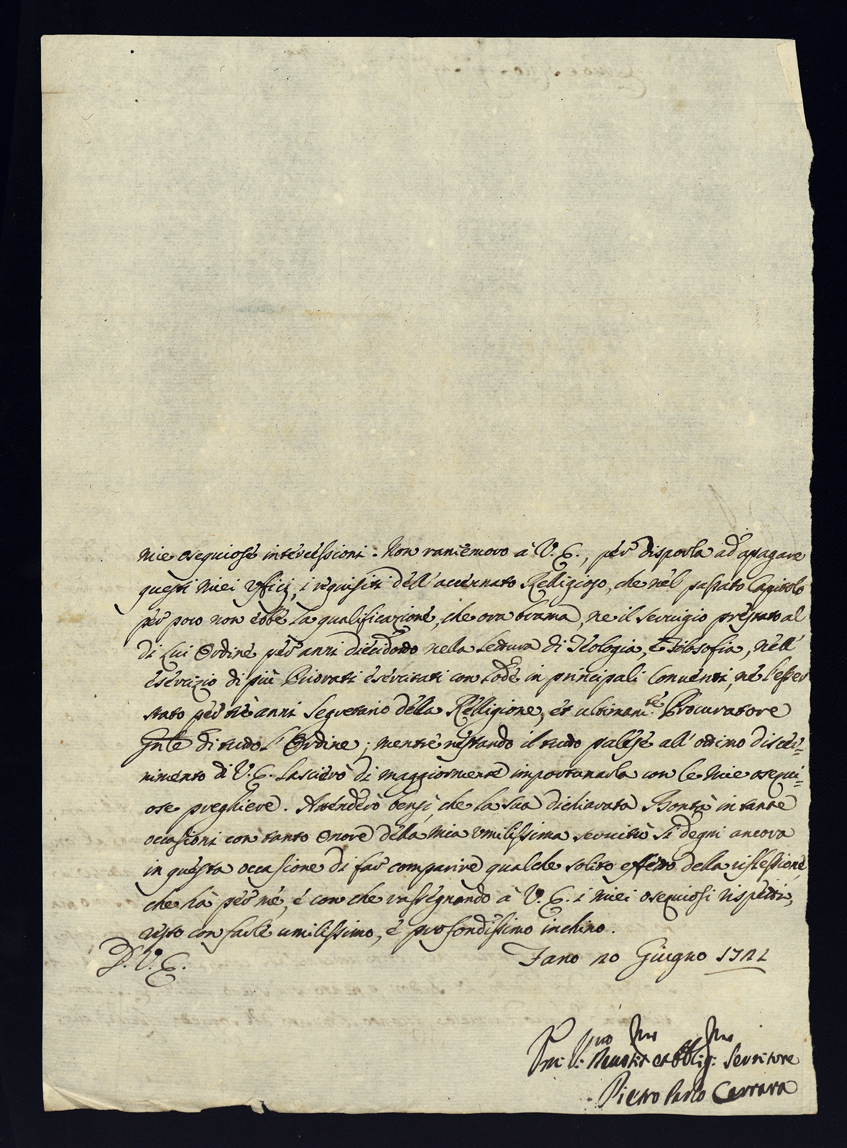 mie ossequiose intercessioni. Non ramemoro à V. E., per disporla ad apagare
questi miei Vfficj, i requisiti dell'accennato Religioso, che nel passato Capitolo
per poco non ebbe la qualificazione, che ora brama, ne il servigio prestato al
di lui Ordine per anni diecidotto nella Lettura di Teologia, e Filosofia, nell'
esercizio di più Priorati esercitati con lode in principali Conventi, nè l'esser
stato per trè anni Segretario della Relligione, et ultimam.te Procuratore
Gnle di tutto l'Ordine; mentre restando il tutto palese all'ottimo discer=
nimento di V. E. lascierò di maggiormente importunarla con le mie ossequi=
ose preghiere. Attenderò bensì, che la sua dichiarata Bontà in tante
occasioni con tanto onore della mia umilissima servitù si degni ancora
in questa occasione di far comparire qualche solito effetto della riflessione
che hà per me, è con che rassegnando à V. E. i miei ossequiosi rispetti,
resto con farle umilissimo, è profondissimo inchino.
D. V. E.
Fano 20 Giugno 1721
Servitore
Pietro Paolo Carrara